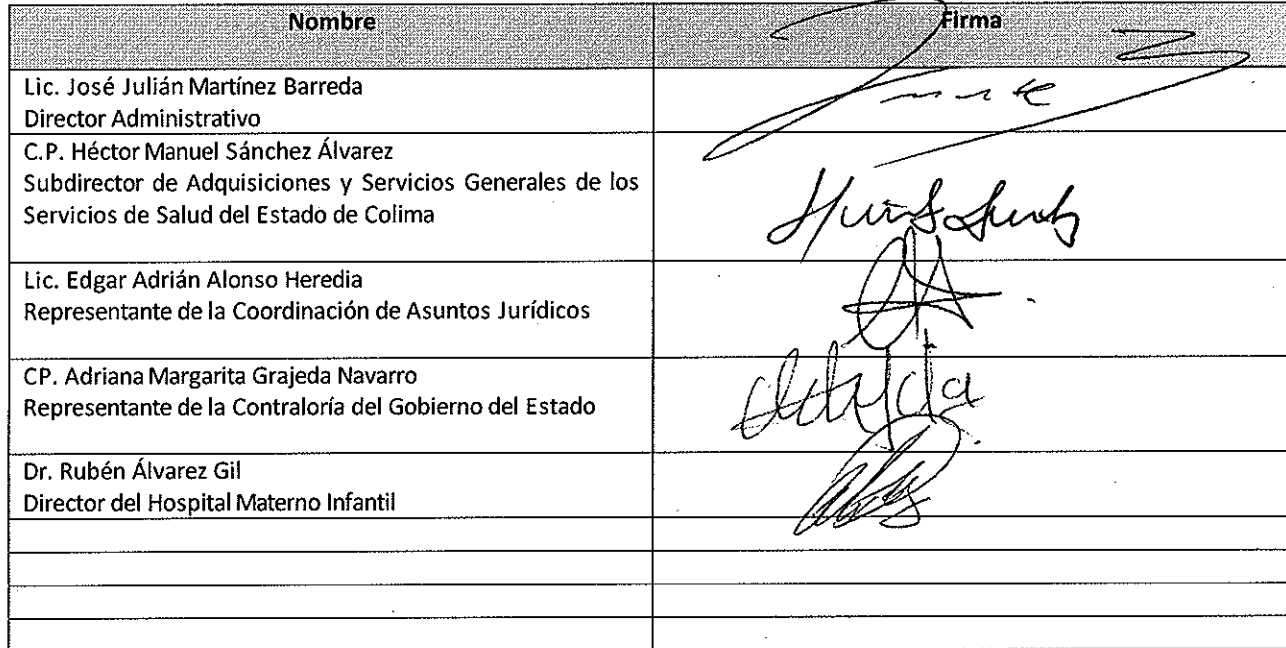 Nombre Firma
Lic. José Julián Martínez Barreda
Director Administrativo
C.P. Héctor Manuel Sánchez Álvarez
Subdirector de Adquisiciones y Servicios Generales de los
Servicios de Salud del Estado de Colima
Lic. Edgar Adrián Alonso Heredia
Representante de la Coordinación de Asuntos Jurídicos
CP. Adriana Margarita Grajeda Navarro
Representante de la Contraloría del Gobierno del Estado
Dr. Rubén Álvarez Gil
Director del Hospital Materno Infantil